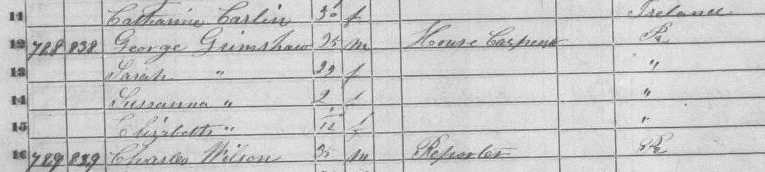 11 Catharine Carlin 30 f Ireland
12 788 838 George Grimshaw 35 m House Carpent Pa
13 Sarah " 29 f "
14 Sussanna " 2 f "
15 Elizabeth " /12 f "
16 789 839 Charles Wilson 35 m Reporter Pa